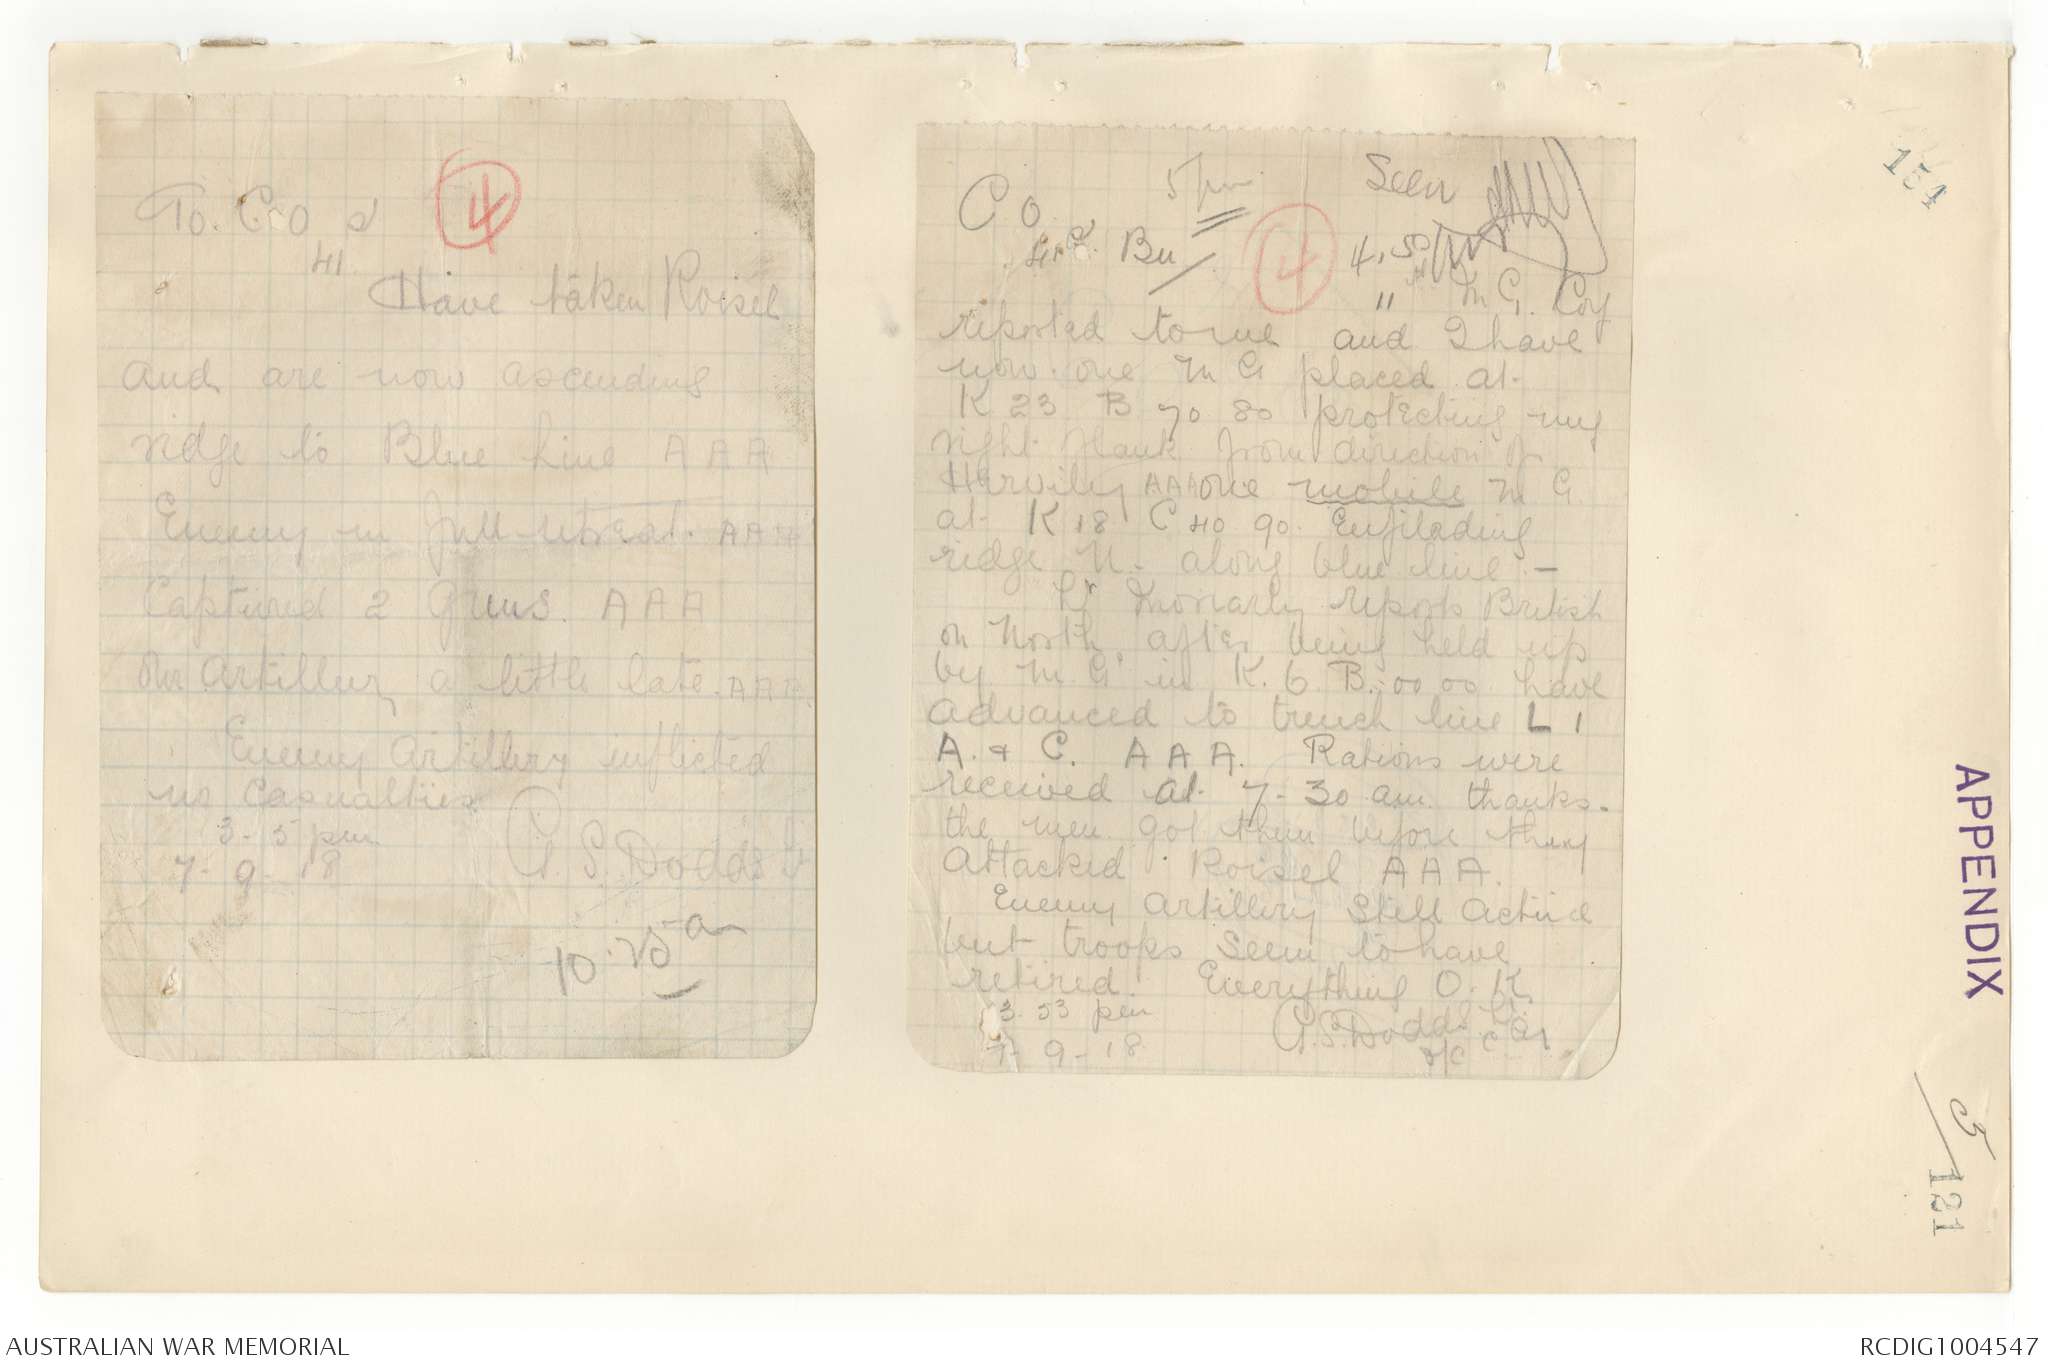 To. C O
41
4
Have taken Roisel
and are now ascending
ridge to Blue Line AAA
Enemy in full retreat. AAA
Captured 2 Guns. AAA
Our Artillery a little late. AAA
Enemy Artillery inflicted
no casualties.
3-5 pm
7-9-18
A. S. Dodds Lt
10.25 am
C O
5 pm
Seen
41st Bn
4
M G. Coy
reported to me and I have
now one M G placed at
K 23 B 70 80 protecting my
right flank from direction of
Hervilly AAA one mobile M G.
at K 18 C 40 90. Enfilading
ridge N. along blue line -
Lt Moriarty reports British
on North after being held up
by M G in K. 6. B. 00 00 have
advanced to trench line L 1
A. & C. AAA. Rations were
received at 7-30 am thanks.
the men got them before they
attacked Roisel AAA.
Enemy Artillery still active
but troops seem to have
retired. Everything O. K.
3.53 pm
7-9-18
A. S. Dodds Lt
O/C C Coy
154
APPENDIX
5/121
AUSTRALIAN WAR MEMORIAL
RCDIG1004547